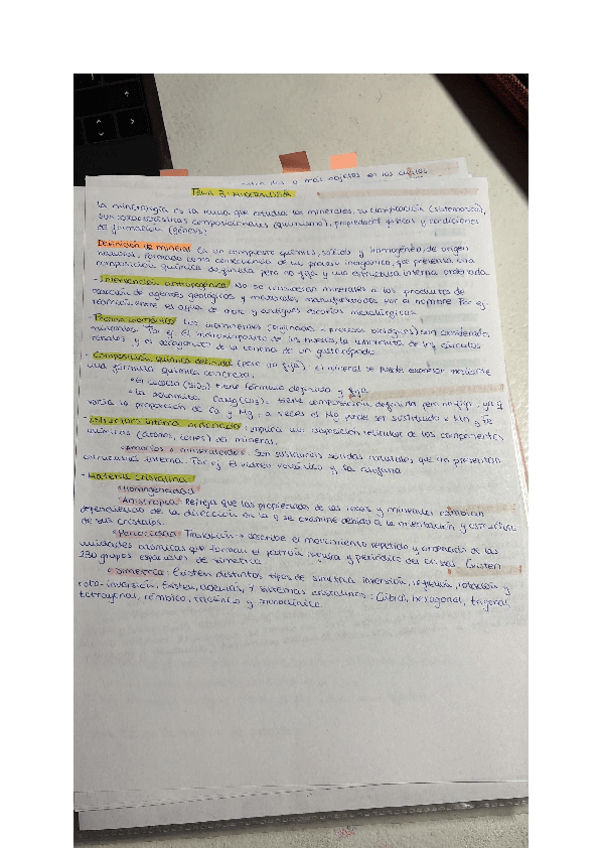 o más capas en los
Tema 3: mineralogía
La mineralogía es la rama que estudia los minerales, su clasificación (sistemática),
sus características composicionales (química), propiedades físicas y condiciones
de formación (génesis).
Definición de mineral Es un compuesto químico, sólido y homogéneo, de origen
natural, formado como consecuencia de un proceso inorgánico, que presenta una
composición química definida pero no fija y una estructura interna ordenada
- Intervención antropogénica No se consideran minerales a los productos de
reacción de agentes geológicos y materiales manufacturados por el hombre. Por ej.
reacción entre el agua de mar y antiguas escorias metalúrgicas.
- Proceso inorgánico Los biominerales (originados procesos biológicos) son considerados
minerales. Por ej. El hidroxiapatito de los huesos, la de los cálculos
renales, y el aragonito de la concha de un gasterópodo
- Composición química definida (pero no fija): el mineral se puede expresar mediante
una fórmula química concreta.
El cuarzo (SiO2) tiene fórmula definida y fija
La dolomita CaMg(CO3)2 tiene composición definida pero no fija, ya q
varía la proporción de Ca y Mg, a veces el Mg puede ser sustituido x Mn y Fe
- Estructura interna ordenada: implica una disposición reticular de los componentes
químicos (átomos, iones) del mineral.
Amorfos o mineraloides. Son sustancias sólidas naturales que no presentan
estructura interna. Por ej. El vidrio volcánico y la
- Materia cristalina
Homogeneidad
Anisotropía Refleja que las propiedades de las rocas y minerales cambian
dependiendo de la dirección en la q se examine debido a la orientación y estructura
de sus cristales.
Periodicidad Traslación → describe el movimiento repetido y ordenado de las
unidades atómicas que forman el patrón regular y periódico del cristal. Existen
230 grupos espaciales de simetría
Simetría: Existen distintos tipos de simetría: inversión, reflexión, rotación y
roto-inversión. Existen, además, 7 sistemas cristalinos: Cúbico, hexagonal, trigonal,
tetragonal, rómbico, triclínico y monoclínico